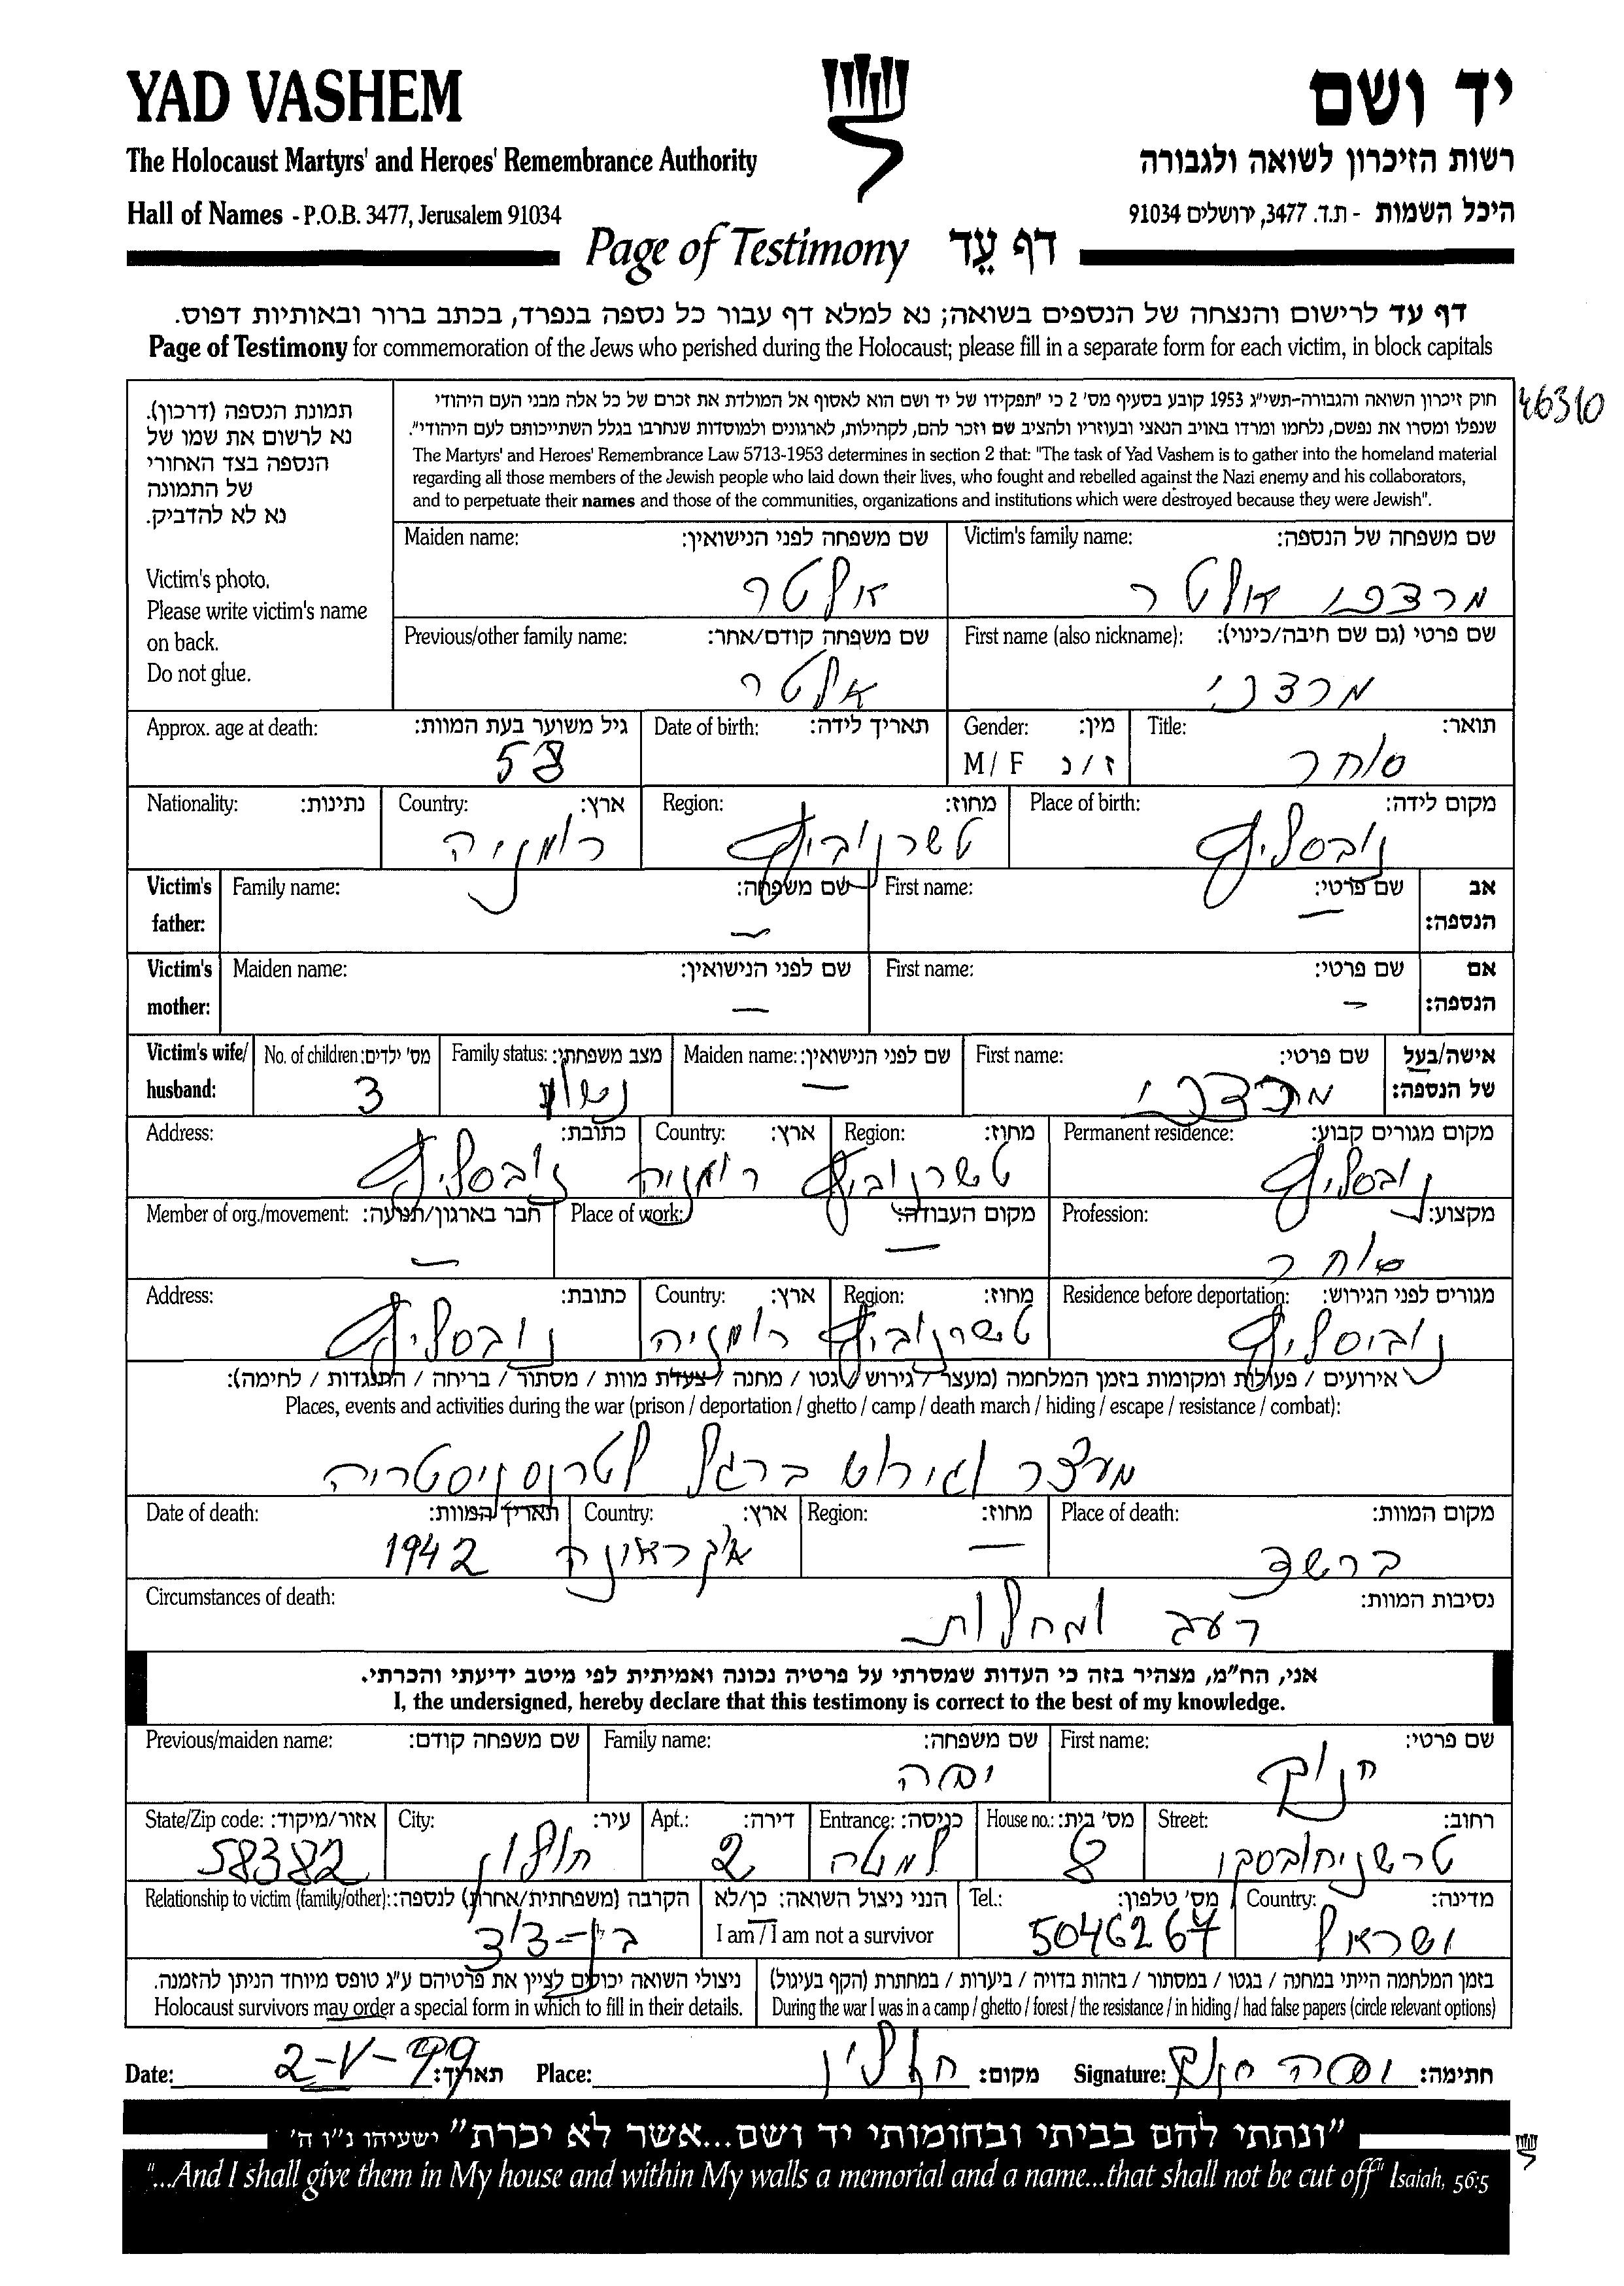 YAD VASHEM
יד ושם
The Holocaust Martyrs' and Heroes' Remembrance Authority
רשות הזיכרון לשואה ולגבורה
Hall of Names - P.O.B. 3477, Jerusalem 91034
היכל השמות - ת.ד. 3477, ירושלים 91034
Page of Testimony דף עֵד
דף עד לרישום והנצחה של הנספים בשואה; נא למלא דף עבור כל נספה בנפרד, בכתב ברור ובאותיות דפוס.
Page of Testimony for commemoration of the Jews who perished during the Holocaust; please fill in a separate form for each victim, in block capitals
46310
תמונת הנספה (דרכון).
נא לרשום את שמו של
הנספה בצד האחורי
של התמונה
נא לא להדביק.
Victim's photo.
Please write victim's name
on back.
Do not glue.
חוק זיכרון השואה והגבורה-תשי״ג 1953 קובע בסעיף מס' 2 כי "תפקידו של יד ושם הוא לאסוף אל המולדת את זכרם של כל אלה מבני העם היהודי
שנפלו ומסרו את נפשם, נלחמו ומרדו באויב הנאצי ובעוזריו ולהציב שם וזכר להם, לקהילות, לארגונים ולמוסדות שנחרבו בגלל השתייכותם לעם היהודי".
The Martyrs' and Heroes' Remembrance Law 5713-1953 determines in section 2 that: "The task of Yad Vashem is to gather into the homeland material
regarding all those members of the Jewish people who laid down their lives, who fought and rebelled against the Nazi enemy and his collaborators,
and to perpetuate their names and those of the communities, organizations and institutions which were destroyed because they were Jewish".
Victim's family name: שם משפחה של הנספה:
מרדכי אלטר
Maiden name: שם משפחה לפני הנישואין:
אלטר
First name (also nickname): שם פרטי (גם שם חיבה/כינוי):
מרדכי
Previous/other family name: שם משפחה קודם/אחר:
אלטר
Title: תואר:
סוחר
Gender: מין:
M / F ז / נ
Date of birth: תאריך לידה:
Approx. age at death: גיל משוער בעת המוות:
58
Place of birth: מקום לידה:
נובסליץ
Region: מחוז:
טשרנוביץ
Country: ארץ:
רומניה
Nationality: נתינות:
Victim's father: אב הנספה:
First name: שם פרטי: —
Family name: שם משפחה: —
Victim's mother: אם הנספה:
First name: שם פרטי: —
Maiden name: שם לפני הנישואין: —
Victim's wife/ husband: אישה/בעל של הנספה:
First name: שם פרטי:
מרדכי
Maiden name: שם לפני הנישואין: —
Family status: מצב משפחתי:
נשוי
No. of children: מס' ילדים:
3
Permanent residence: מקום מגורים קבוע:
נובסליץ
Region: מחוז:
טשרנוביץ
Country: ארץ:
רומניה
Address: כתובת:
נובסליץ
Profession: מקצוע:
סוחר
Place of work: מקום העבודה: —
Member of org./movement: חבר בארגון/תנועה: —
Residence before deportation: מגורים לפני הגירוש:
נוביסליץ
Region: מחוז:
טשרנוביץ
Country: ארץ:
רומניה
Address: כתובת:
נובסליץ
אירועים / פעולות ומקומות בזמן המלחמה (מעצר / גירוש / גטו / מחנה / צעדת מוות / מסתור / בריחה / התנגדות / לחימה):
Places, events and activities during the war (prison / deportation / ghetto / camp / death march / hiding / escape / resistance / combat):
מעצר וגירוש ברגל לטרנסניסטריה
Place of death: מקום המוות:
ברשד
Region: מחוז: —
Country: ארץ:
אוקראינה
Date of death: תאריך המוות:
1942
Circumstances of death: נסיבות המוות:
רעב ומחלות
אני, הח״מ, מצהיר בזה כי העדות שמסרתי על פרטיה נכונה ואמיתית לפי מיטב ידיעתי והכרתי.
I, the undersigned, hereby declare that this testimony is correct to the best of my knowledge.
First name: שם פרטי:
Family name: שם משפחה:
Previous/maiden name: שם משפחה קודם:
Street: רחוב:
טשרניחובסקי
House no.: מס' בית:
8
Entrance: כניסה:
למטה
Apt.: דירה:
2
City: עיר:
חולון
State/Zip code: אזור/מיקוד:
58382
Country: מדינה:
ישראל
Tel.: מס' טלפון:
5046267
הנני ניצול השואה: כן/לא
I am / I am not a survivor
Relationship to victim (family/other): הקרבה (משפחתית/אחרת) לנספה:
בן-דוד
בזמן המלחמה הייתי במחנה / בגטו / במסתור / בזהות בדויה / ביערות / במחתרת (הקף בעיגול)
During the war I was in a camp / ghetto / forest / the resistance / in hiding / had false papers (circle relevant options)
ניצולי השואה יכולים לציין את פרטיהם ע״ג טופס מיוחד הניתן להזמנה.
Holocaust survivors may order a special form in which to fill in their details.
Date: 2-V-99 תאריך: Place: חולון מקום: Signature: חתימה:
"ונתתי להם בביתי ובחומותי יד ושם...אשר לא יכרת" ישעיהו נ״ו ה'
"...And I shall give them in My house and within My walls a memorial and a name...that shall not be cut off" Isaiah, 56:5